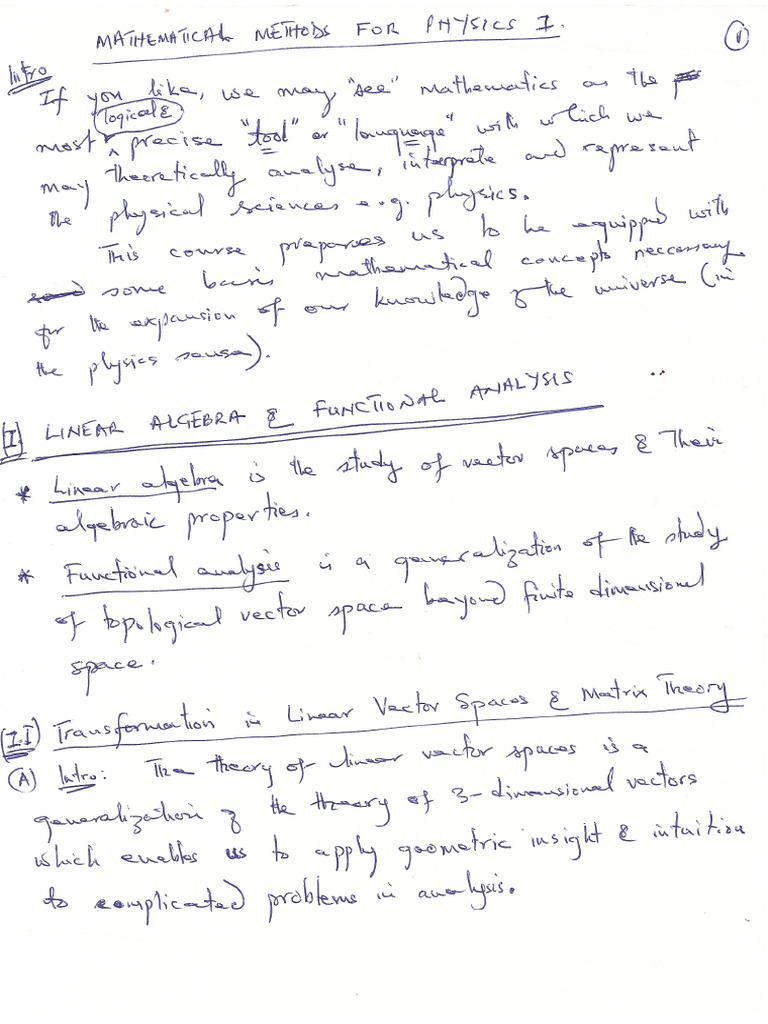 MATHEMATICAL METHODS FOR PHYSICS I.
①
Intro
If you like, we may "see" mathematics as the
logical &
most ^ precise "tool" or "language" with which we
may theoretically analyse, interprete and represent
the physical sciences e.g. physics.
This course prepares us to be equipped with
some basis mathematical concepts neccessary
for the expansion of our knowledge of the universe (in
the physics sense).
[I] LINEAR ALGEBRA & FUNCTIONAL ANALYSIS
* Linear algebra is the study of vector spaces & their
algebraic properties.
* Functional analysis is a generalization of the study
of topological vector space beyond finite dimensional
space.
(I.I) Transformation in Linear Vector Spaces & Matrix Theory
(A) Intro: The theory of linear vector spaces is a
generalization of the theory of 3-dimensional vectors
which enables us to apply geometric insight & intuition
to complicated problems in analysis.